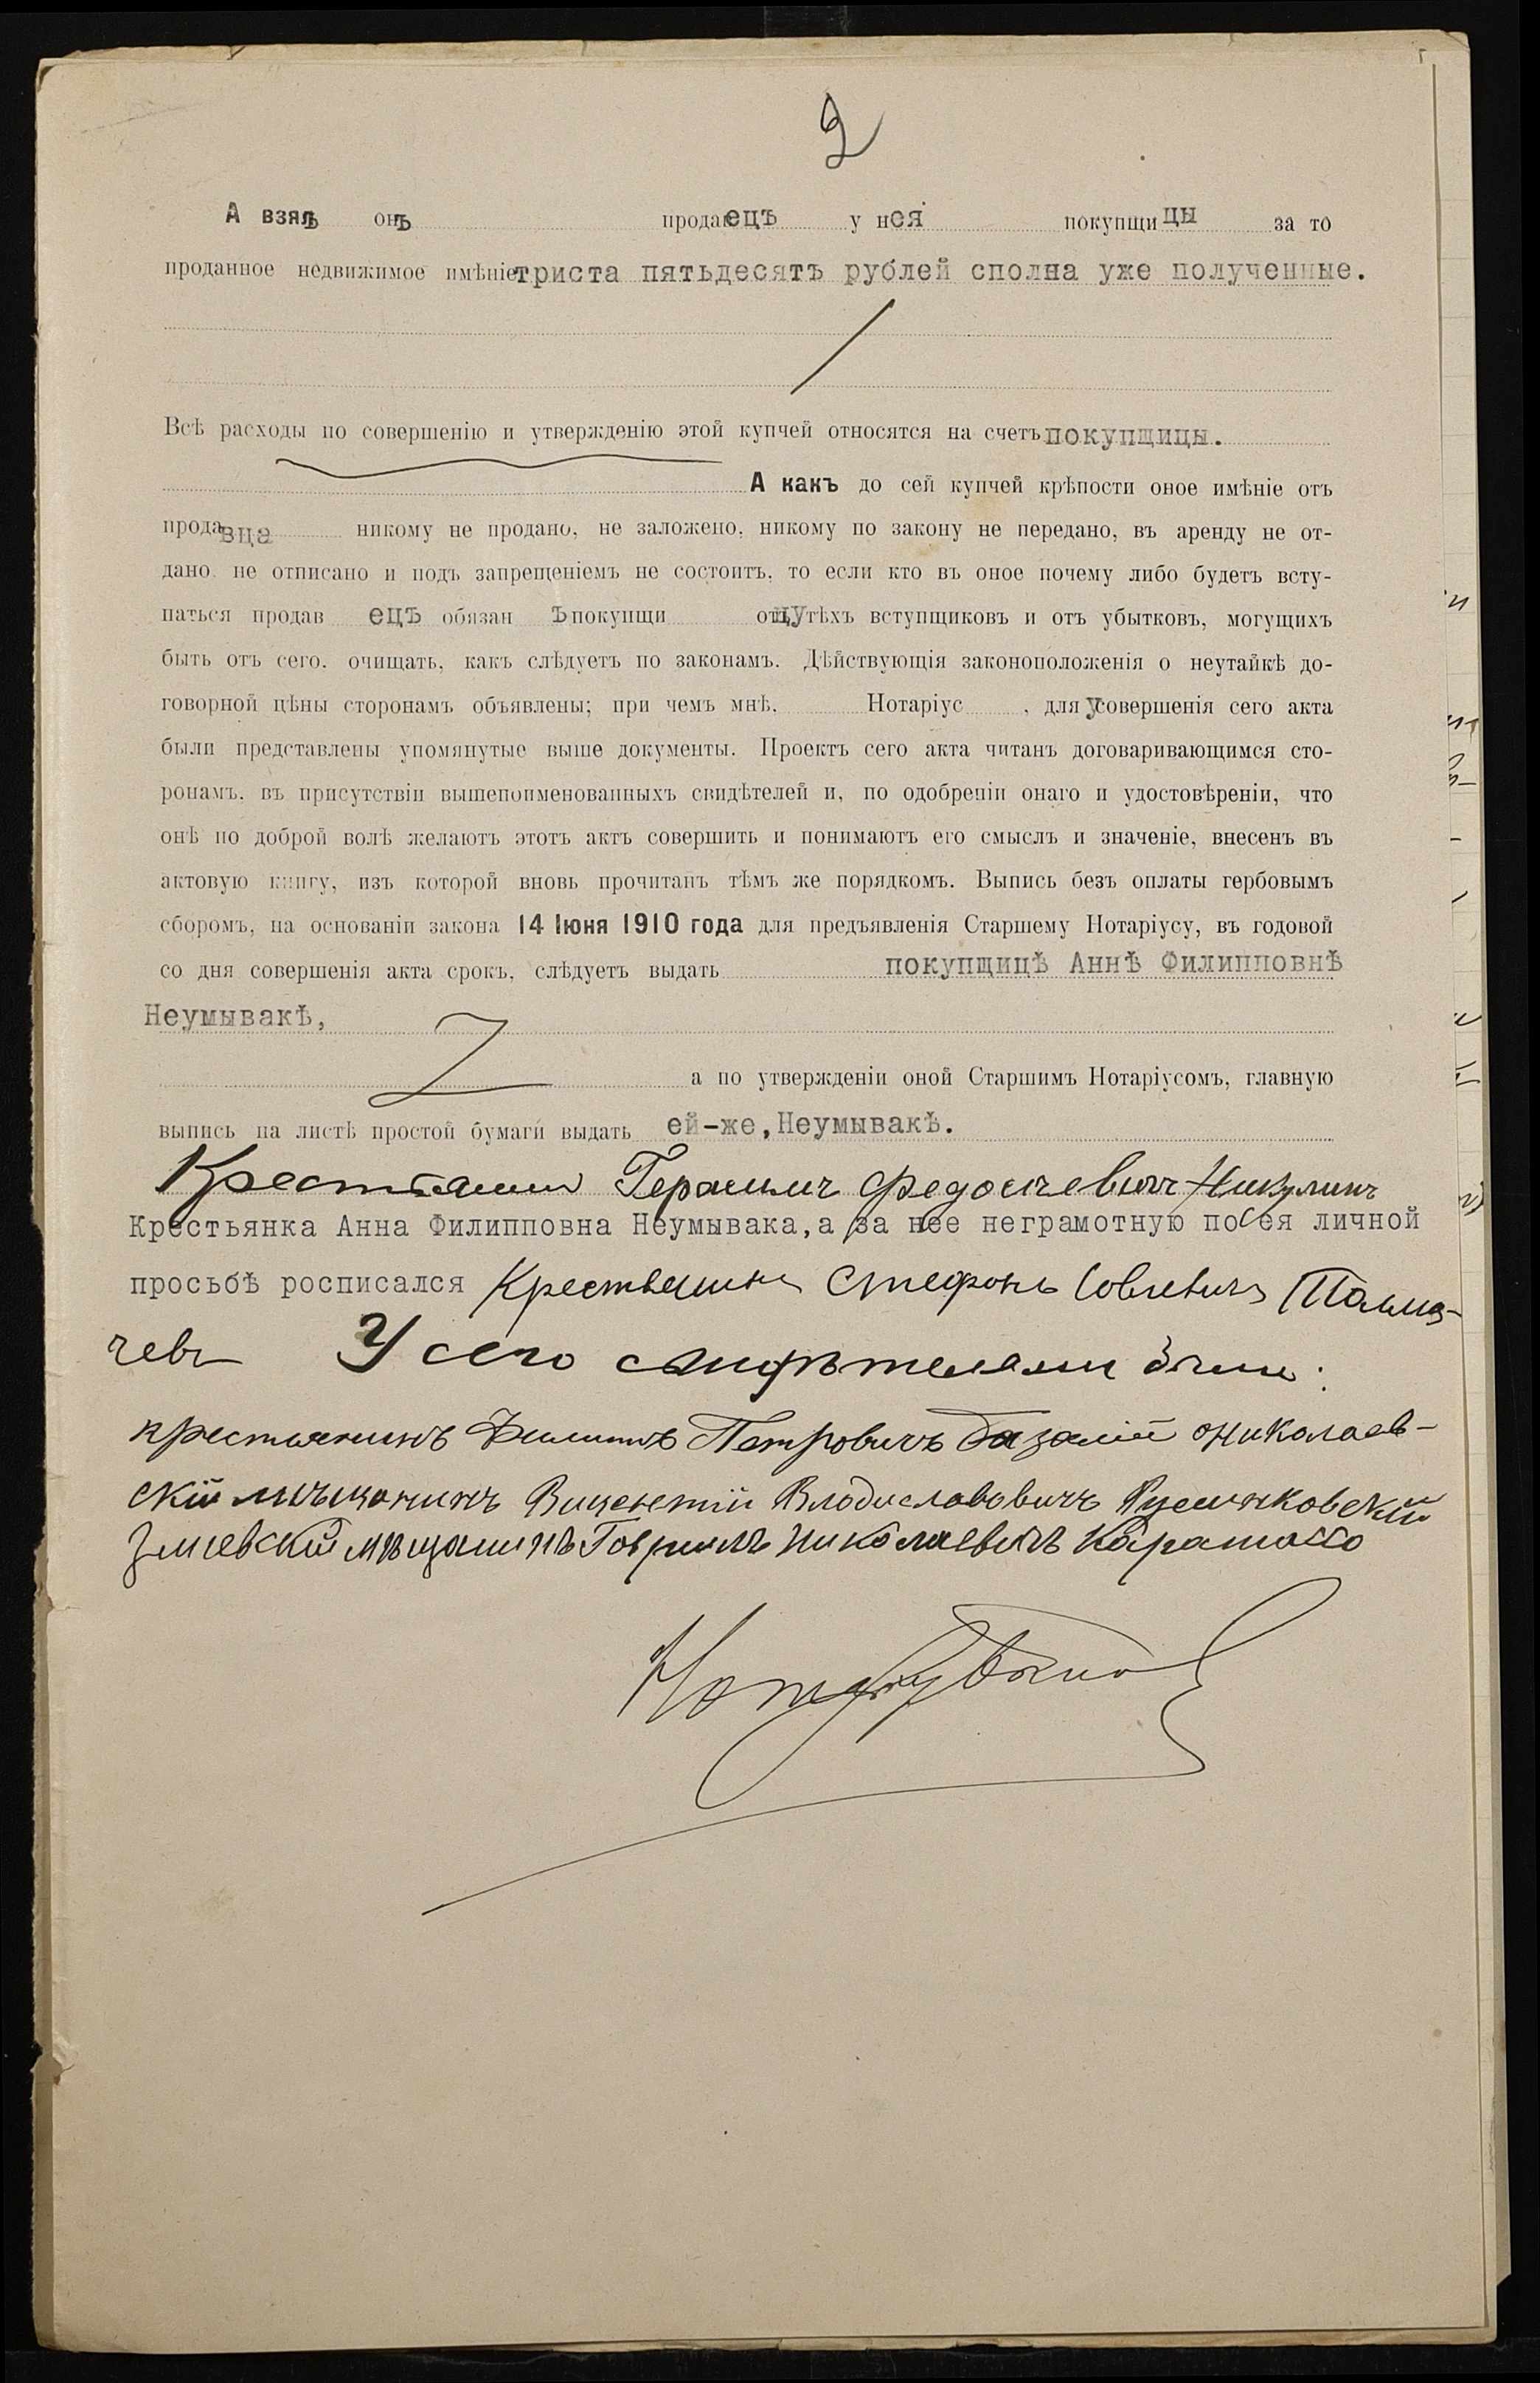 2
А взялъ онъ продавецъ у нея покупщицы за то
проданное недвижимое имѣніе триста пятьдесятъ рублей сполна уже полученные.
Всѣ расходы по совершенію и утвержденію этой купчей относятся на счетъ покупщицы.
А какъ до сей купчей крѣпости оное имѣніе отъ
продавца никому не продано, не заложено, никому по закону не передано, въ аренду не от-
дано, не отписано и подъ запрещеніемъ не состоитъ, то если кто въ оное почему либо будетъ всту-
паться продавецъ обязанъ покупщицу отъ тѣхъ вступщиковъ и отъ убытковъ, могущихъ
быть отъ сего, очищать, какъ слѣдуетъ по законамъ. Дѣйствующія законоположенія о неутайкѣ до-
говорной цѣны сторонамъ объявлены; при чемъ мнѣ, Нотаріусу, для совершенія сего акта
были представлены упомянутые выше документы. Проектъ сего акта читанъ договаривающимся сто-
ронамъ, въ присутствіи вышепоименованныхъ свидѣтелей и, по одобреніи онаго и удостовѣреніи, что
онѣ по доброй волѣ желаютъ этотъ актъ совершить и понимаютъ его смыслъ и значеніе, внесенъ въ
актовую книгу, изъ которой вновь прочитанъ тѣмъ же порядкомъ. Выпись безъ оплаты гербовымъ
сборомъ, на основаніи закона 14 Іюня 1910 года для предъявленія Старшему Нотаріусу, въ годовой
со дня совершенія акта срокъ, слѣдуетъ выдать покупщицѣ Аннѣ Филипповнѣ
Неумывакѣ,
а по утвержденіи оной Старшимъ Нотаріусомъ, главную
выпись на листѣ простой бумаги выдать ей-же, Неумывакѣ.
Герасимъ Федосѣевичъ Никулинъ
Крестьянка Анна Филипповна Неумывака, а за нее неграмотную по ея личной
просьбѣ росписался Крестьянинъ Стефанъ Толма-
чевъ У сего свидѣтелями были:
крестьянинъ Филиппъ Петровичъ Базалій Николаев-
скій мѣщанинъ Викентій Владиславовичъ
Зміевскій мѣщанинъ Гавріилъ Николаевичъ